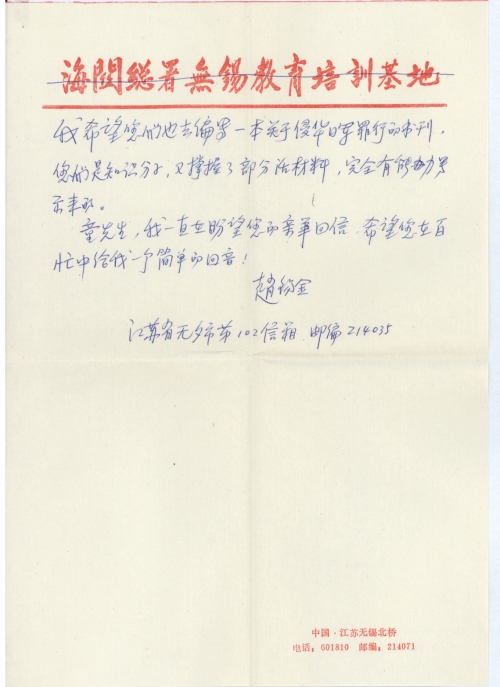 海關總署無錫教育培訓基地
我希望您们也去编写一本关于侵华日军罪行的书刊,
您们是知识分子,又掌握了部分活材料,完全有能力写
出来的。
童先生,我一直在盼望您的亲笔回信,希望您在百
忙中给我一个简单的回音!
江苏省无夕市第102信箱 邮编214035
中国·江苏无锡北桥
电话:601810 邮编:214071